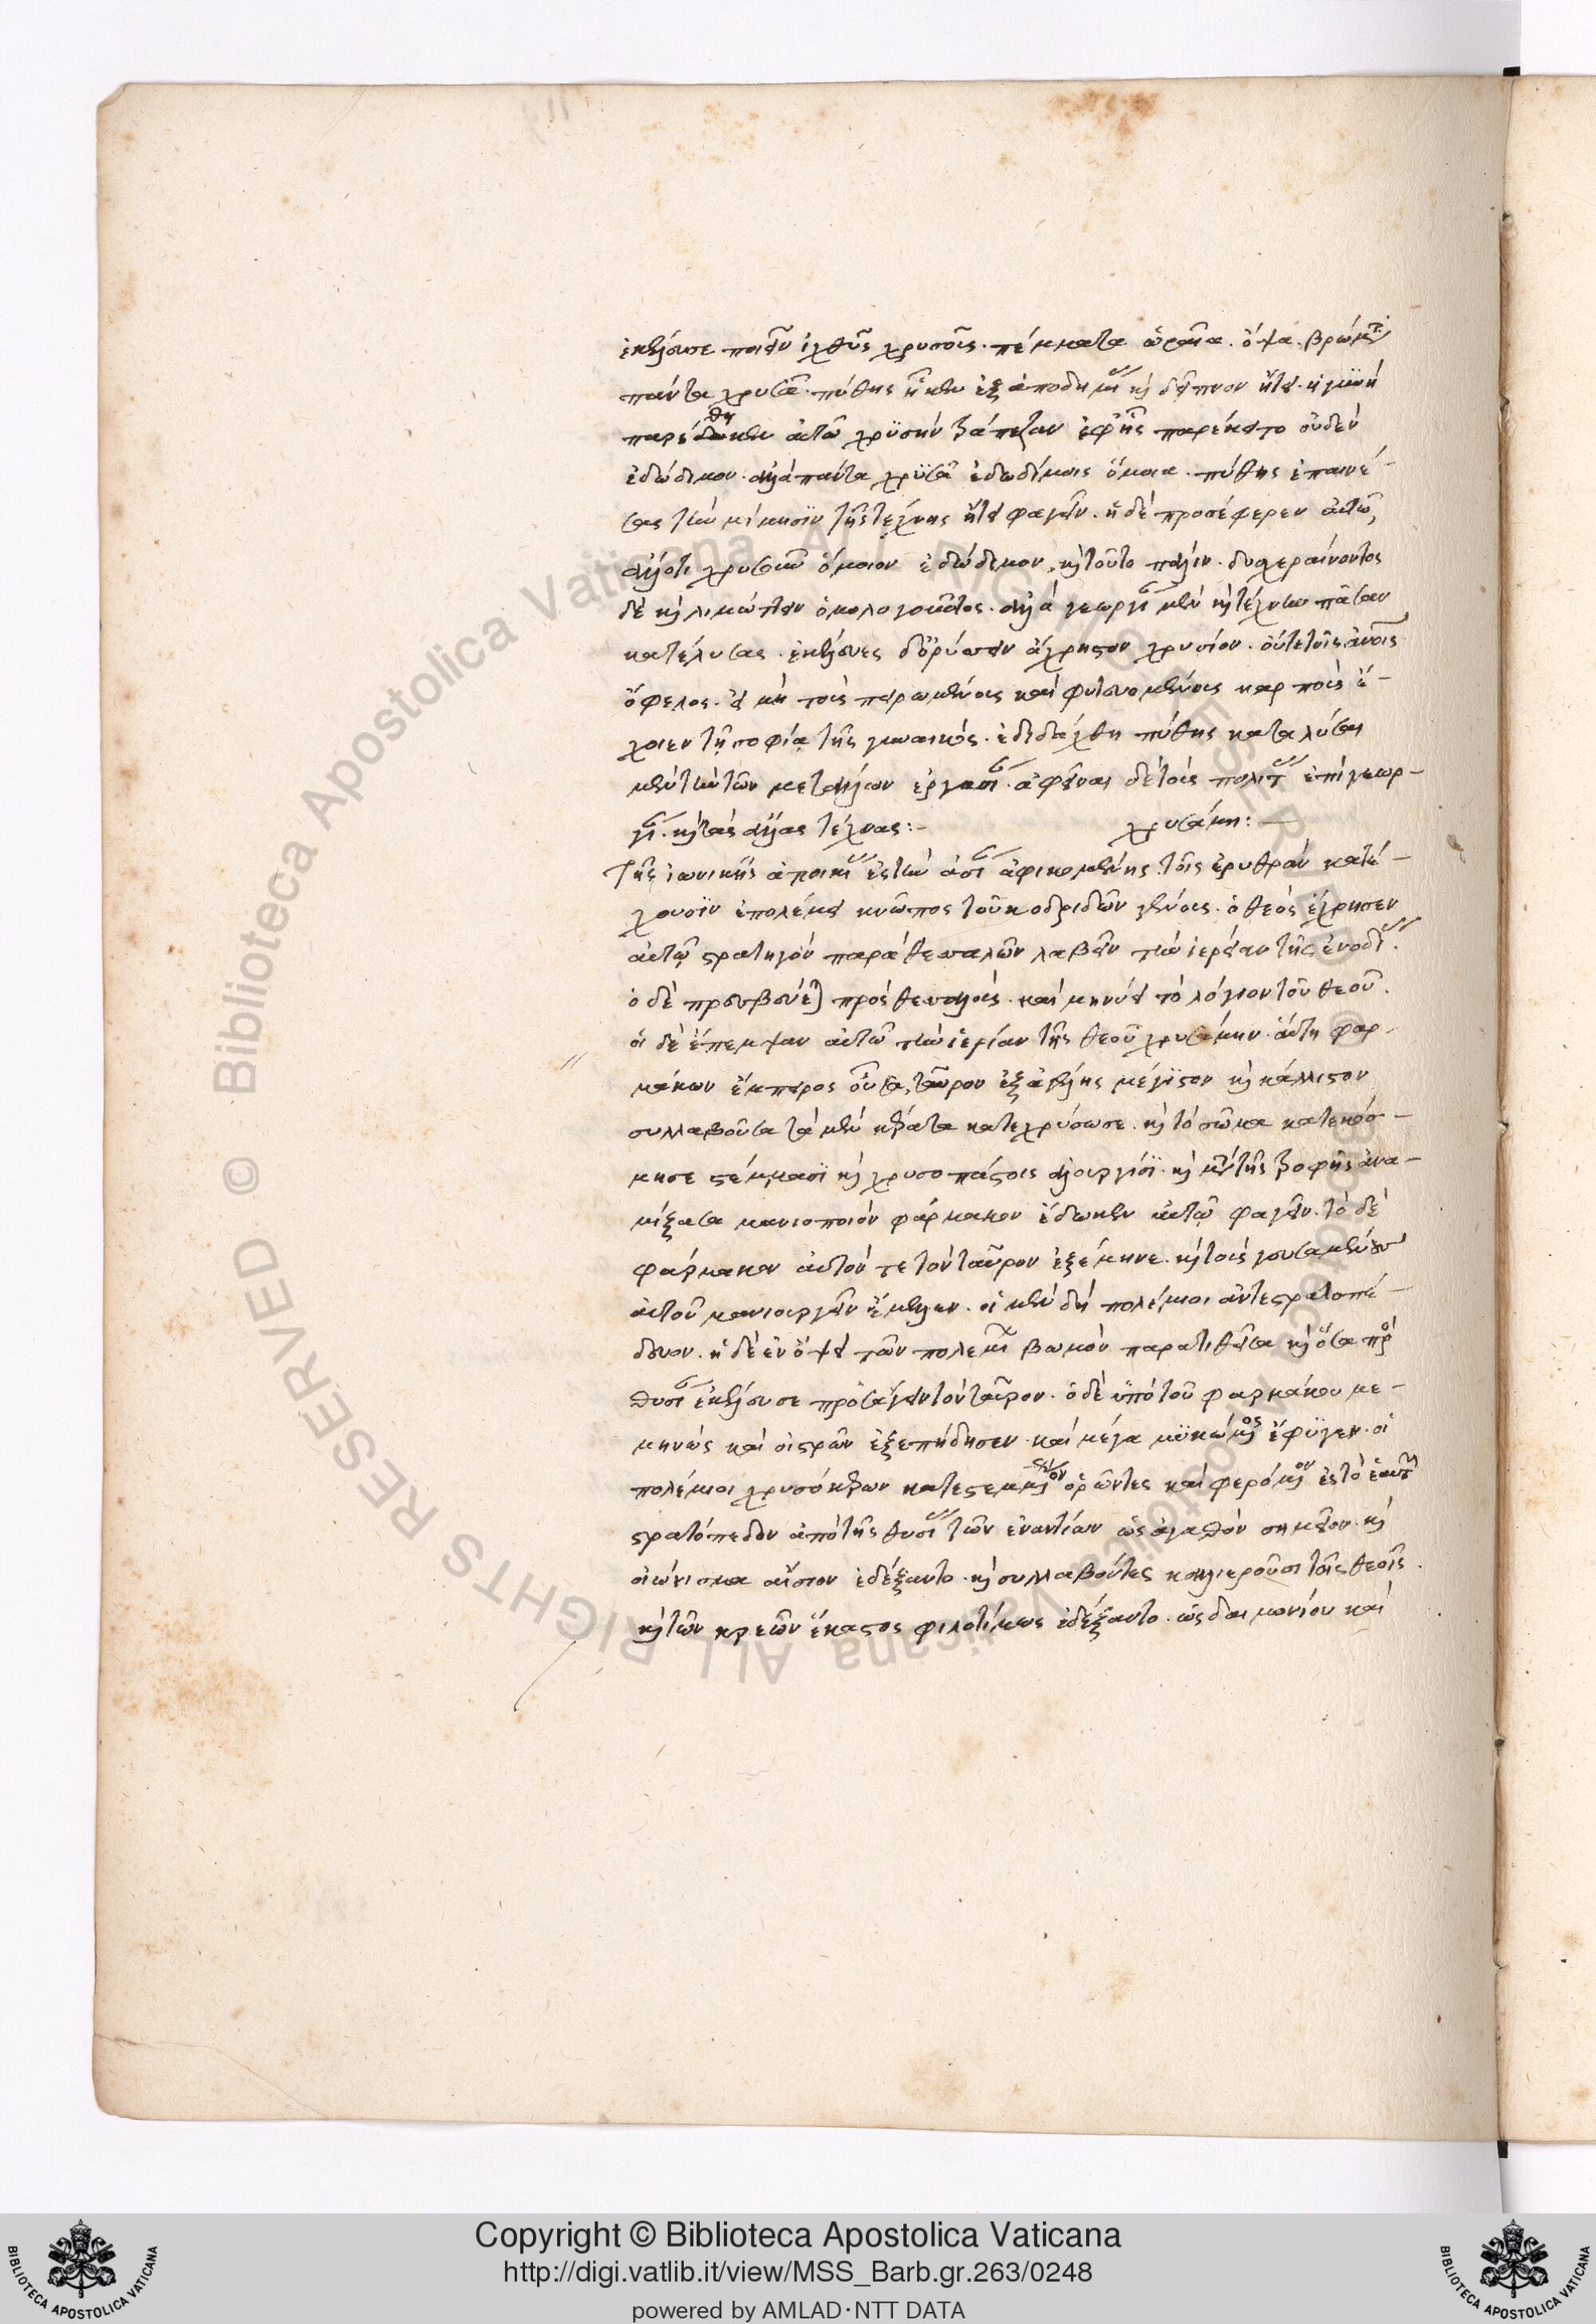 ἐκέλευσε ποιεῖν ἰχθῦς χρυσοῦς. πέμματα ὡραῖα. ὄψα. βρώματα
πάντα χρυσᾶ. πύθης ἧκεν ἐξ ἀποδημίας καὶ δεῖπνον ᾔτει. ἡ γυνὴ
παρέθηκεν αὐτῶ χρϋσὴν τράπεζαν ἐφ' ἧς παρέκειτο οὐδὲν
ἐδώδιμον. ἀλλὰ πάντα χρϋσᾶ ἐδωδίμοις ὅμοια. πύθης ἐπαινέ-
σας τὴν μίμησϊν τῆς τέχνης ᾔτει φαγεῖν. ἡ δὲ προσέφερεν αὐτῶ,
ἄλλο τι χρυσοῦν ὅμοιον ἐδώδιμον. καὶ τοῦτο πάλιν. δυσχεραίνοντος
δὲ καὶ λιμώττειν ὁμολογοῦντος. ἀλλὰ γεωργίαν μὲν καὶ τέχνην πᾶσαν
κατέλυσας. ἐκέλευες δὲ ὀρύσσειν ἄχρηστον χρυσίον. οὔτε τοῖς ἀνοις
ὄφελος. εἰ μὴ τοῖς σπειρομένοις καὶ φυτευομένοις καρποῖς ἔ-
χοιεν τῇ σοφίᾳ τῆς γυναικός. ἐδιδάχθη πύθης καταλύσαι
μὲν τὴν τῶν μετάλλων ἐργασίαν. ἀφεῖναι δὲ τοὺς πολίτας ἐπὶ γεωρ-
γίαν. καὶ τὰς ἄλλας τέχνας:-
χρυσάμη:
Τῆς ἰωνικῆς ἀποικίας ἐς τὴν ἀσίαν ἀφικομένης. τοῖς ἐρυθρὰν κατέ-
χουσϊν ἐπολέμει κνῶπος τοῦ κοδριδῶν γένους. ὁ θεὸς ἔχρησεν
αὐτῷ στρατηγὸν παρὰ θεσσαλῶν λαβεῖν τὴν ἱέρειαν τῆς ἐνοδίας.
ὁ δὲ πρεσβεύεται πρὸς θεσσαλοὺς. καὶ μηνύει τὸ λόγιον τοῦ θεοῦ.
οἱ δὲ ἔπεμψαν αὐτῶ τὴν ἱερίαν τῆς θεοῦ χρυσάμην. αὕτη φαρ-
μάκων ἔμπειρος οὖσα, ταῦρον ἐξ ἀγέλης μέγϊστον καὶ κάλλιστον
συλλαβοῦσα τὰ μὲν κέρατα κατεχρύσωσε. καὶ τὸ σῶμα κατεκόσ-
μησε στέμμασϊ καὶ χρυσοπάστοις ἁλουργίσϊ. καὶ μετὰ τῆς τροφῆς ἀνα-
μίξασα μανιοποιὸν φάρμακον ἔδωκεν αὐτῷ φαγεῖν. τὸ δὲ
φάρμακον αὐτόν τε τὸν ταῦρον ἐξέμηνε. καὶ τοὺς γευσαμένους
αὐτοῦ μανιουργεῖν ἔμελλεν. οἱ μὲν δὴ πολέμιοι ἀντεστρατοπέ-
δευον. ἡ δὲ ἐν ὄψει τῶν πολεμίων βωμὸν παρατιθεῖσα καὶ ὅσα πρὸς
θυσίαν ἐκέλευσε προσάγειν τὸν ταῦρον. ὁ δὲ ὑπὸ τοῦ φαρμάκου με-
μηνὼς καὶ οἰστρῶν ἐξεπήδησεν. καὶ μέγα μϋκώμενος ἔφϋγεν. οἱ
πολέμιοι χρυσόκερων κατεστεμμένον ὁρῶντες καὶ φερόμενον ἐς τὸ ἑαυτῶν
στρατόπεδον ἀπὸ τῆς θυσίας τῶν ἐναντίων ὡς ἀγαθὸν σημεῖον. καὶ
οἰώνισμα αἴσιον ἐδέξαντο. καὶ συλλαβόντες καλλιεροῦσι τοῖς θεοῖς.
καὶ τῶν κρεῶν ἕκαστος φιλοτίμως ἐδέξαντο. ὡς δαιμονίου καὶ
Copyright © Biblioteca Apostolica Vaticana
http://digi.vatlib.it/view/MSS_Barb.gr.263/0248
powered by AMLAD·NTT DATA